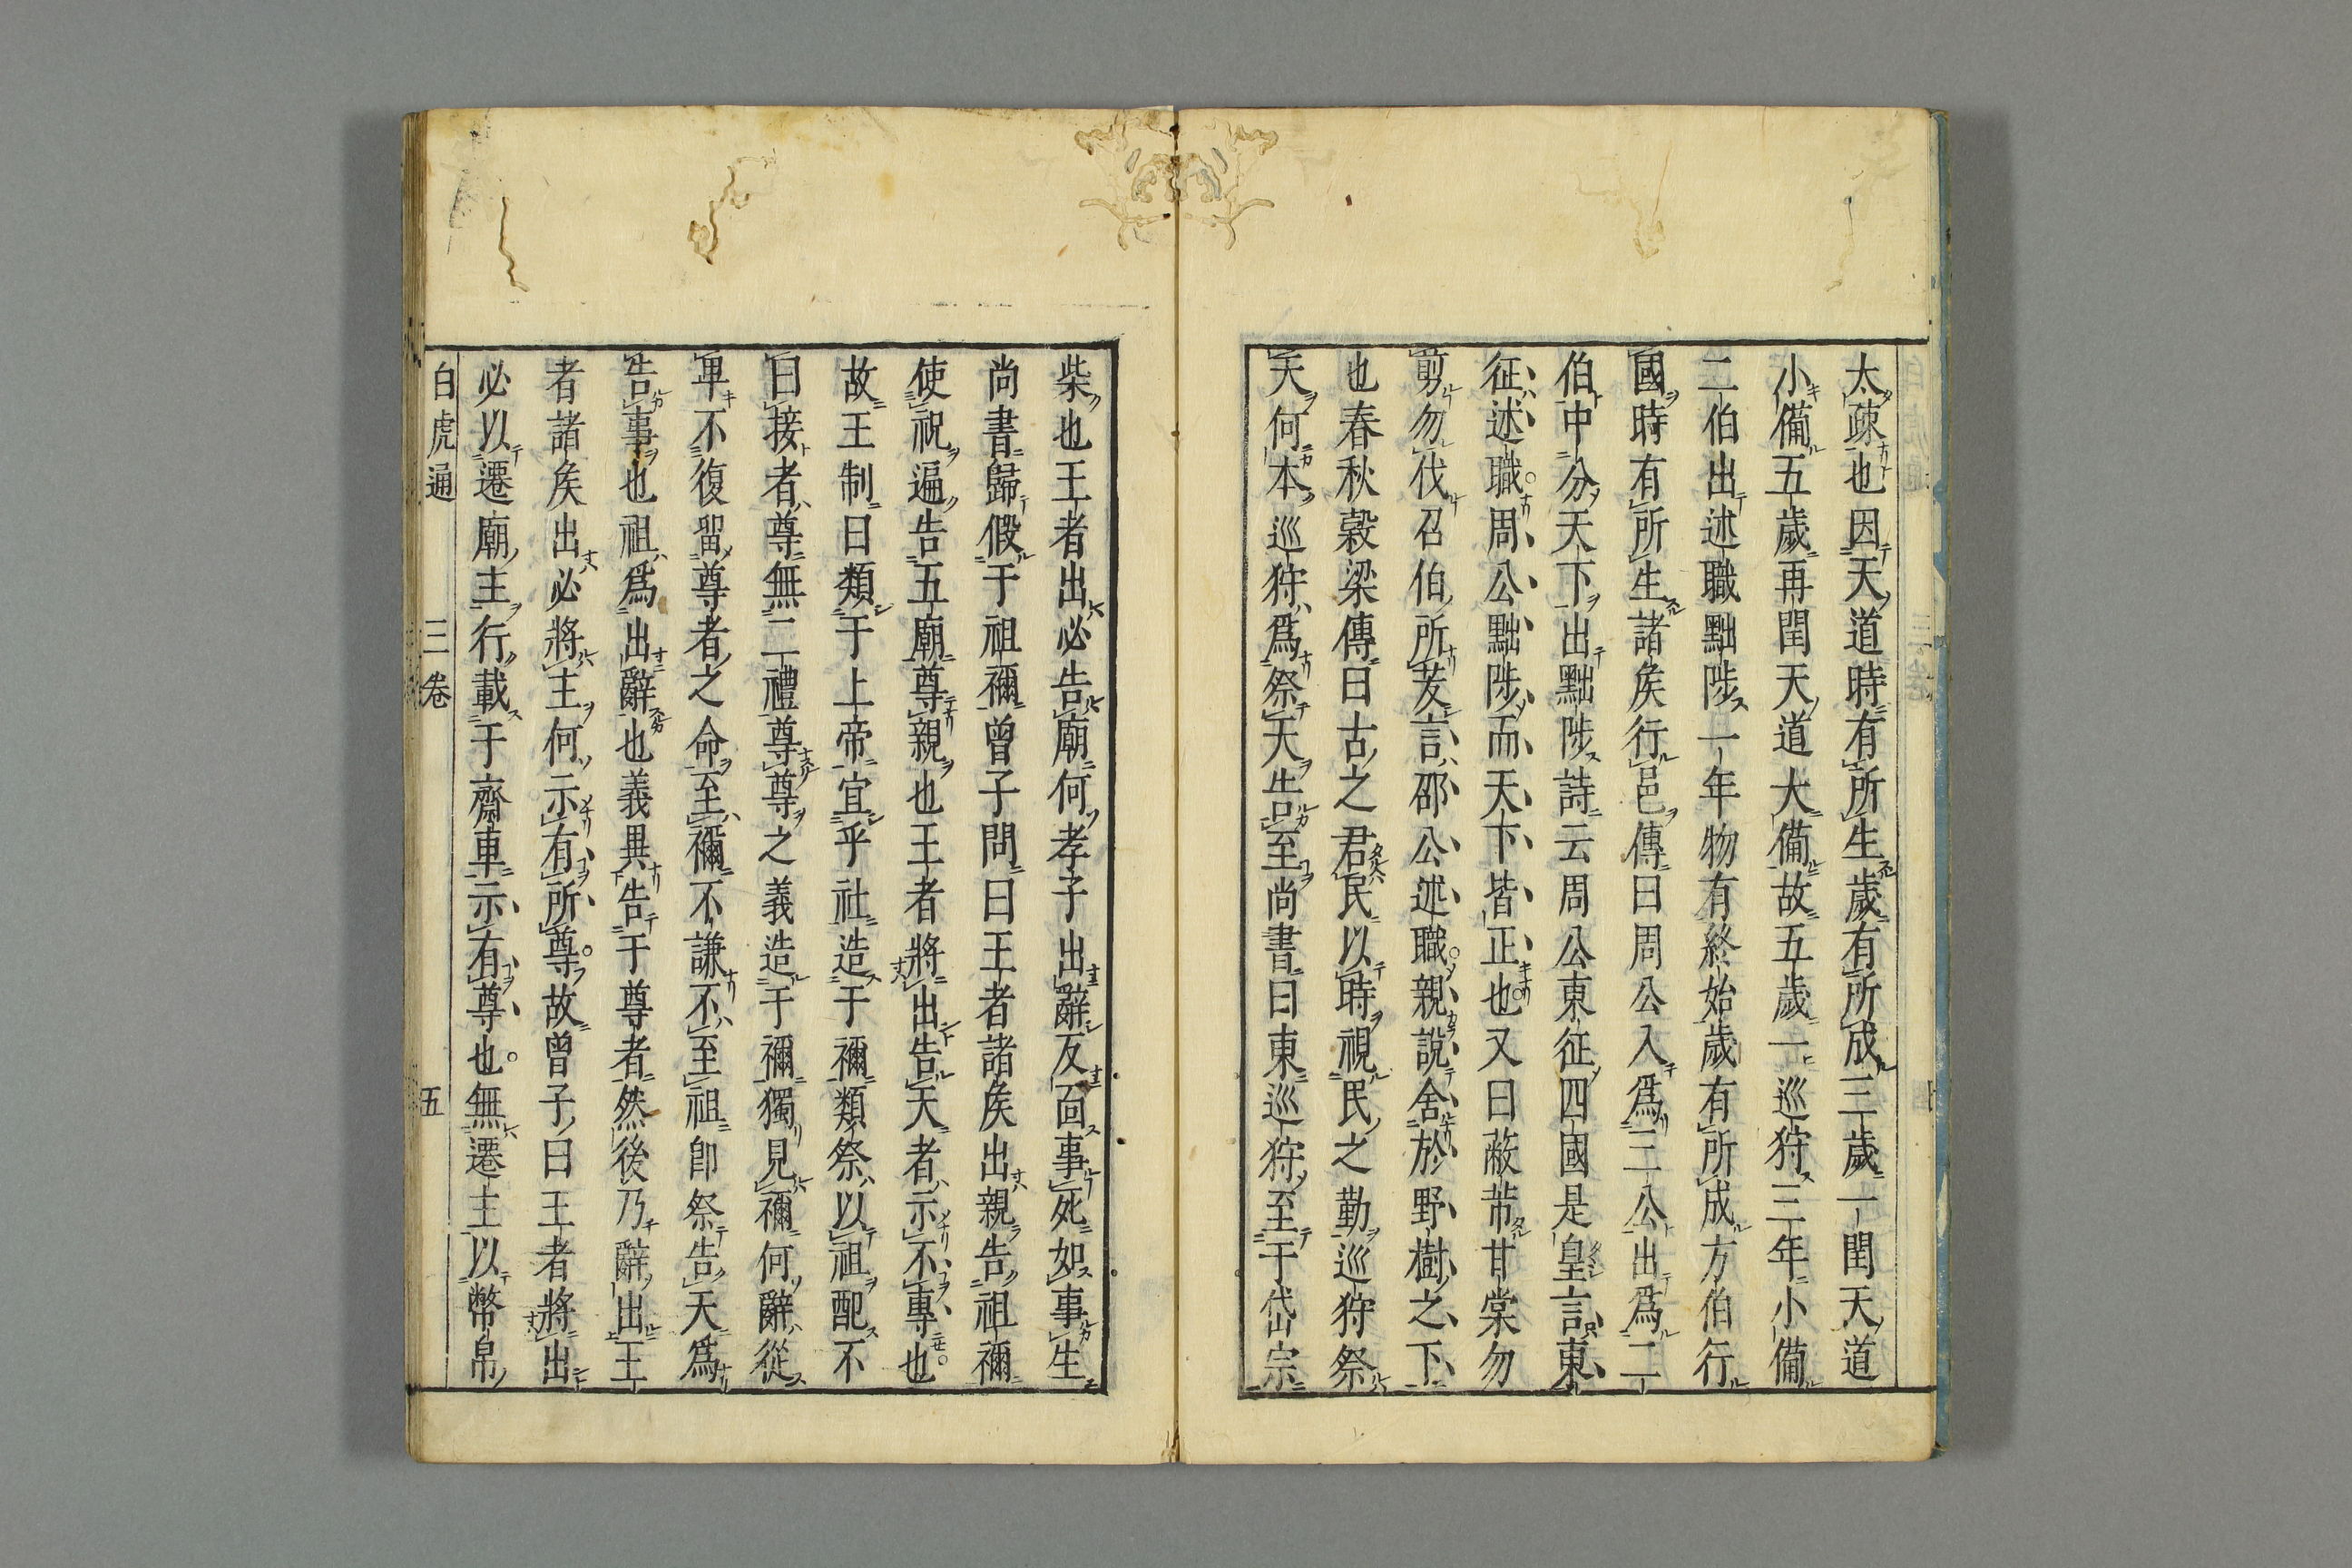 太疎也因天道時有所生歲有所成三歲一閏天道
小備五歲再閏天道大備故五歲一巡狩三年小備
二伯出述職黜陟一年物有終始歲有所成方伯行
國時有所生諸矦行邑傳曰周公入爲三公出爲二
伯中分天下出黜陟詩云周公東征四國是皇言東
征述職周公黜陟而天下皆正也又曰蔽芾甘棠勿
剪勿伐召伯所茇言邵公述職親說舍於野樹之下
也春秋穀梁傳曰古之君民以時視民之勤巡狩祭
天何本巡狩爲祭天告至尚書曰東巡狩至于岱宗
柴也王者出必告廟何孝子出辭反面事死如事生
尚書歸假于祖禰曾子問曰王者諸矦出親告祖禰
使祝遍告五廟尊親也王者將出告天者示不專也
故王制曰類于上帝宜乎社造于禰類祭以祖配不
曰接者尊無二禮尊尊之義造于禰獨見禰何辭從
卑不復留尊者之命至禰不謙不至祖即祭告天爲
告事也祖爲出辭也義異告于尊者然後乃辭出王
者諸矦出必將主何示有所尊故曾子曰王者將出
必以遷廟主行載于齋車示有尊也無遷主以幣帛
白虎通 三卷 五